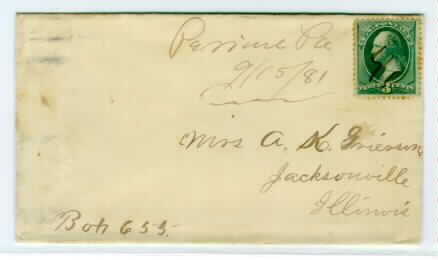 Perrine Pa
9/15/81
Mrs A. K. Grierson
Jacksonville
Illinois
Box 655.